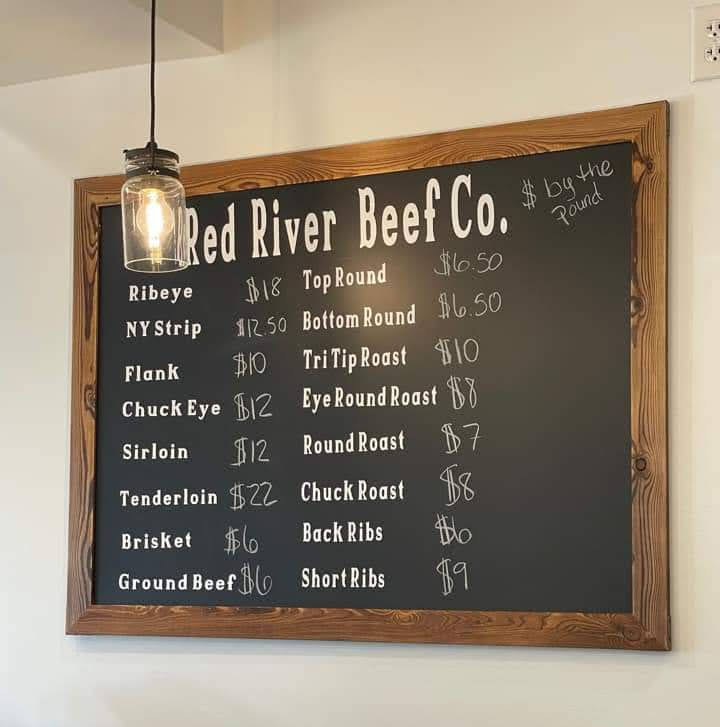 Red River Beef Co.
$ by the
pound
Ribeye $18
NY Strip $12.50
Flank $10
Chuck Eye $12
Sirloin $12
Tenderloin $22
Brisket $6
Ground Beef $6
Top Round $6.50
Bottom Round $6.50
Tri Tip Roast $10
Eye Round Roast $8
Round Roast $7
Chuck Roast $8
Back Ribs $6
Short Ribs $9